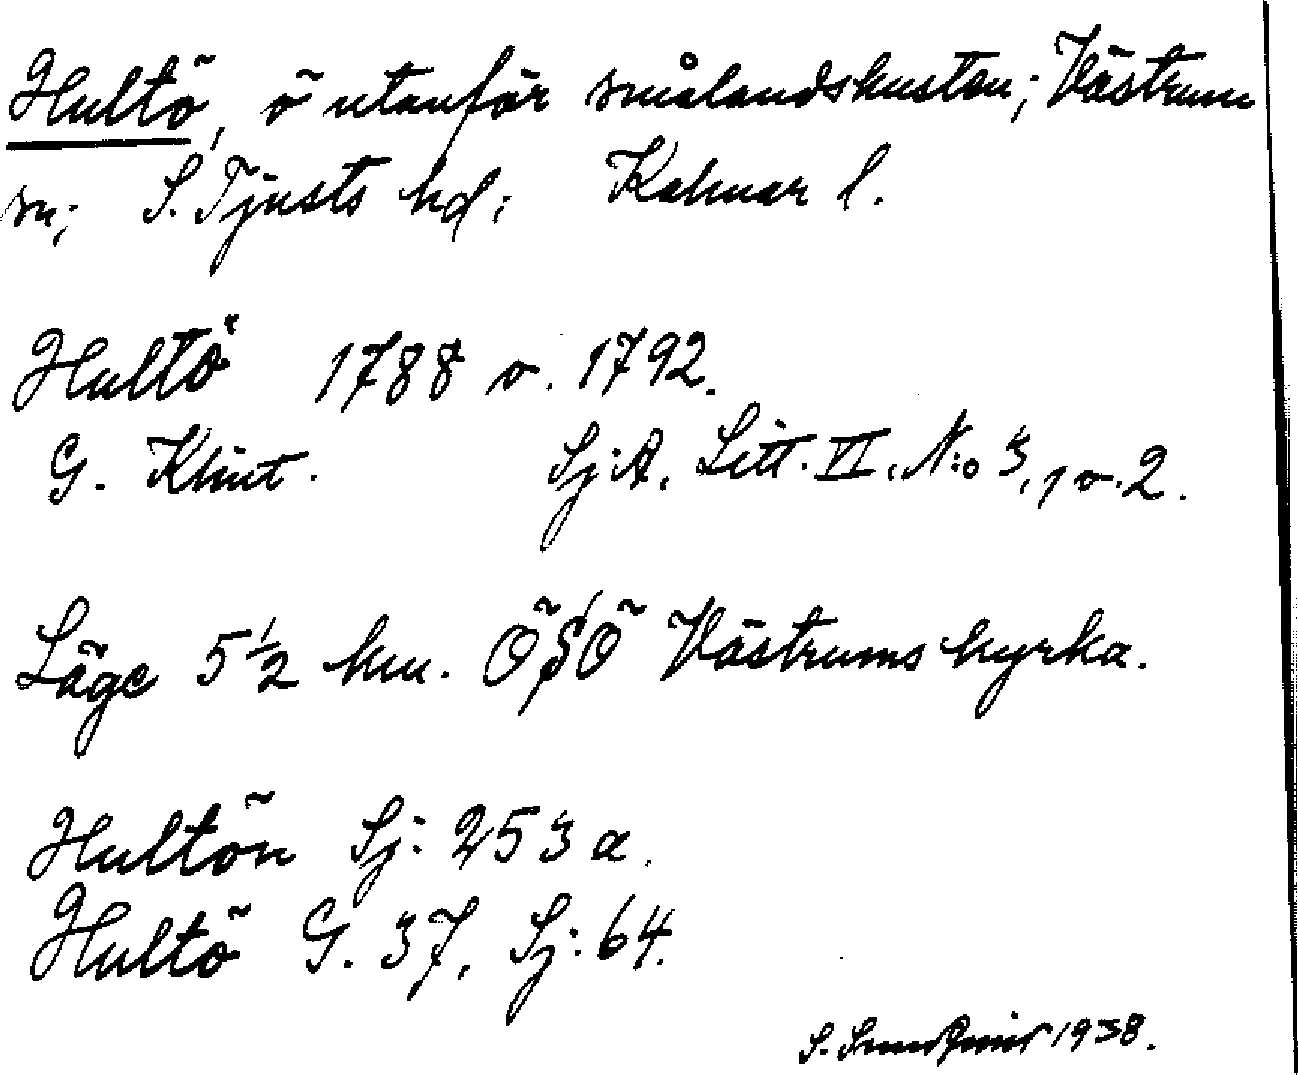 Hultö, ö utanför smålandskusten; Västrum
sn; S. Tjusts hd; Kalmar l.
Hultö 1788 o. 1792.
G. Klint. Sj:A. Litt. VI. N:o 3, 1 o. 2.
Läge 5 1/2 km. ÖSÖ Västrums kyrka.
Hultön Sj: 253 a.
Hultö G. 37, Sj: 64.
S. 1938.